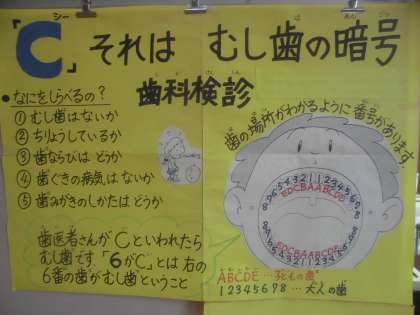 「C」それは むし歯の暗号
シー
歯科検診
●なにをしらべるの？
① むし歯はないか
② ちりょうしているか
③ 歯ならびは どうか
④ 歯ぐきの病気は ないか
⑤ 歯みがきのしかたは どうか
歯医者さんが Cといわれたら
むし歯です。「6がC」とは 右の
6番の歯がむし歯ということ
歯の場所がわかるように番号があります。
87654321 12345678
EDCBAABCDE
EDCBAABCDE
87654321 12345678
ABCDE…子どもの歯
12345678…大人の歯